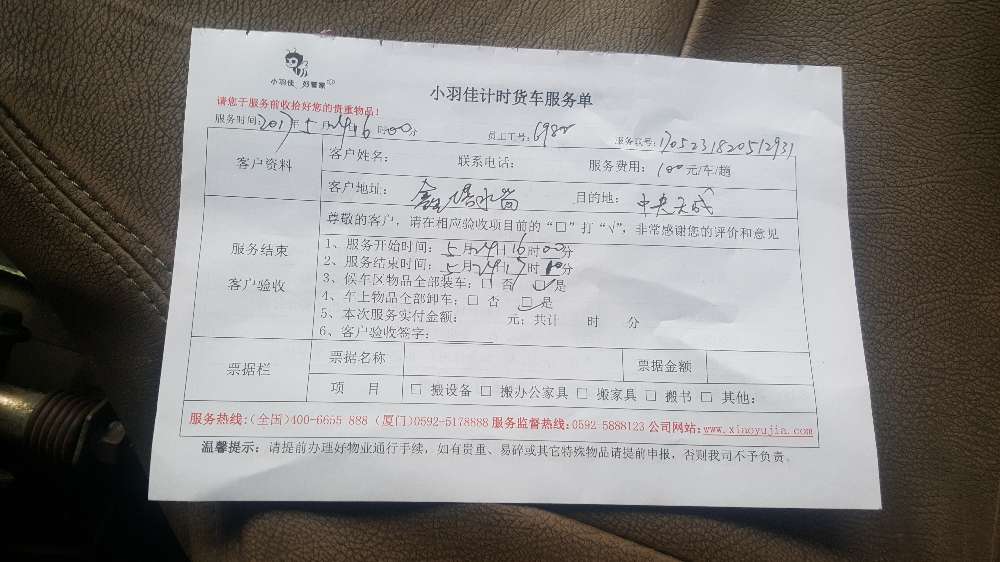 小羽佳 好管家
小羽佳计时货车服务单
请您于服务前收拾好您的贵重物品!
服务时间:2017年5月24日16时00分 员工工号:6982 服务联号:1705231820512931
客户资料
客户姓名: 联系电话: 服务费用:100元/车/趟
客户地址: 目的地:中央天成
服务结束
客户验收
尊敬的客户,请在相应验收项目前的“□”打“√”,非常感谢您的评价和意见
1、服务开始时间:5月24日16时00分
2、服务结束时间:5月24日17时10分
3、候车区物品全部装车:□ 否 ☑是
4、车上物品全部卸车:□ 否 ☑是
5、本次服务实付金额: 元;共计 时 分
6、客户验收签字:
票据栏
票据名称 票据金额
项 目 □ 搬设备 □ 搬办公家具 □ 搬家具 □ 搬书 □ 其他:
服务热线:(全国)400-6655 888 (厦门)0592-5178888 服务监督热线:0592 5888123 公司网站:www.xiaoyujia.com
温馨提示:请提前办理好物业通行手续,如有贵重、易碎或其它特殊物品请提前申报,否则我司不予负责。